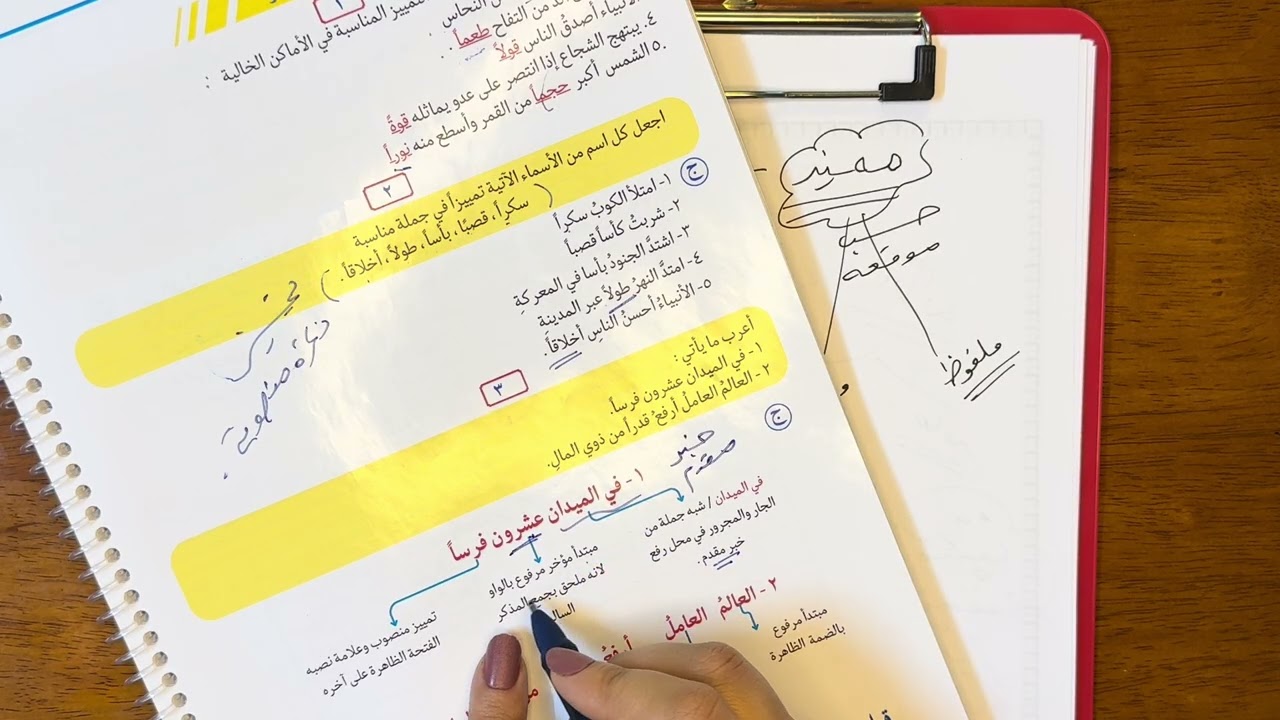 ١
التمييز المناسبة في الأماكن الخالية :
من التفاح طعماً
النحاس
الأنبياء أصدقُ الناس قولاً
٤. يبتهج الشجاع إذا انتصر على عدو يماثله قوةً
٥. الشمس أكبر حجماً من القمر وأسطع منه نوراً
٢
اجعل كل اسم من الأسماء الآتية تمييزاً في جملة مناسبة
( سكراً، قصبًا، بأساً، طولاً، أخلاقاً. )
ج
١- امتلأ الكوبُ سكراً
٢- شربتُ كأسا قصباً
٣- اشتدَّ الجنودُ بأسا في المعركةِ
٤- امتدَّ النهرُ طولاً عبر المدينة
٥- الأنبياءُ أحسنُ الناسِ أخلاقاً.
نكرة منصوبة.
٣
أعرب ما يأتي :
١- في الميدان عشرون فرساً.
٢- العالمُ العاملُ أرفعُ قدراً من ذوي المالِ.
ج
خبر
مقدم
١- في الميدان عشرون فرساً
في الميدان / شبه جملة من
الجار والمجرور في محل رفع
خبر مقدم.
مبتدأ مؤخر مرفوع بالواو
لانه ملحق بجمع المذكر
تمييز منصوب وعلامة نصبه
الفتحة الظاهرة على آخره
٢- العالمُ العاملُ أرفعُ
مبتدأ مرفوع
بالضمة الظاهرة
مميز
حسب
موقعه
ملفوظ